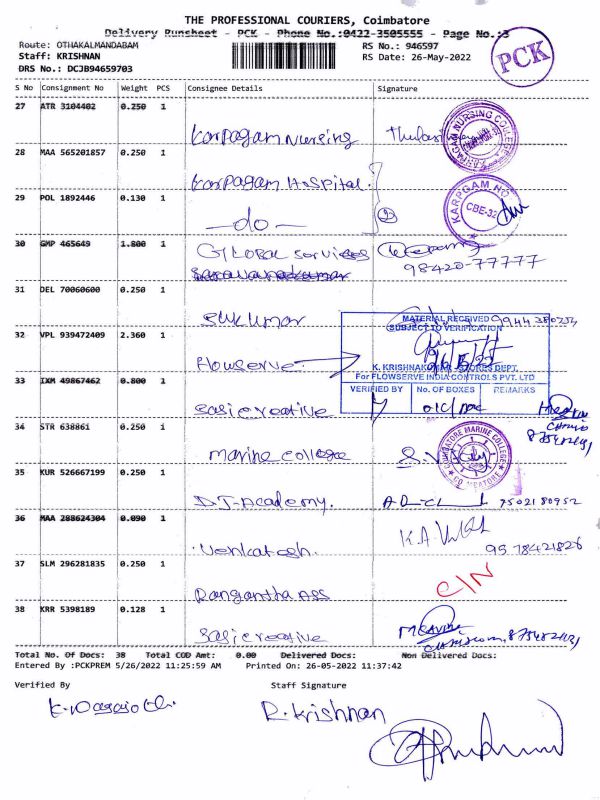 THE PROFESSIONAL COURIERS, Coimbatore
Delivery Runsheet - PCK - Phone No.:0422-3505555 - Page No.:3
Route: OTHAKALMANDABAM RS No.: 946597
Staff: KRISHNAN RS Date: 26-May-2022
DRS No.: DCJB94659703
PCK
S No Consignment No Weight PCS Consignee Details Signature
27 ATR 3104402 0.250 1
Karpagam Nursing
KARPAGAM NURSING COLLEGE
28 MAA 565201857 0.250 1
Karpagam Hospital.
29 POL 1892446 0.130 1
-do-
CBE-32
30 GMP 465649 1.800 1
Global services
98420-77777
31 DEL 70060600 0.250 1
Sukumar
MATERIAL RECEIVED
SUBJECT TO VERIFICATION
32 VPL 939472409 2.360 1
Flowserve
K. KRISHNAKUMAR - STORES DEPT.
For FLOWSERVE INDIA CONTROLS PVT. LTD
VERIFIED BY No. OF BOXES REMARKS
33 IXM 49867462 0.800 1
Sasicreative
34 STR 638861 0.250 1
Marine college
COIMBATORE MARINE COLLEGE
COIMBATORE
35 KUR 526667199 0.250 1
D.J-Academy.
7502180952
36 MAA 288624304 0.090 1
Venkatesh.
9578421826
37 SLM 296281835 0.250 1
Rangantha Ass
C/N
38 KRR 5398189 0.128 1
Sasicreative
Total No. Of Docs: 38 Total COD Amt: 0.00 Delivered Docs: Non Delivered Docs:
Entered By :PCKPREM 5/26/2022 11:25:59 AM Printed On: 26-05-2022 11:37:42
Verified By Staff Signature
R. Krishnan